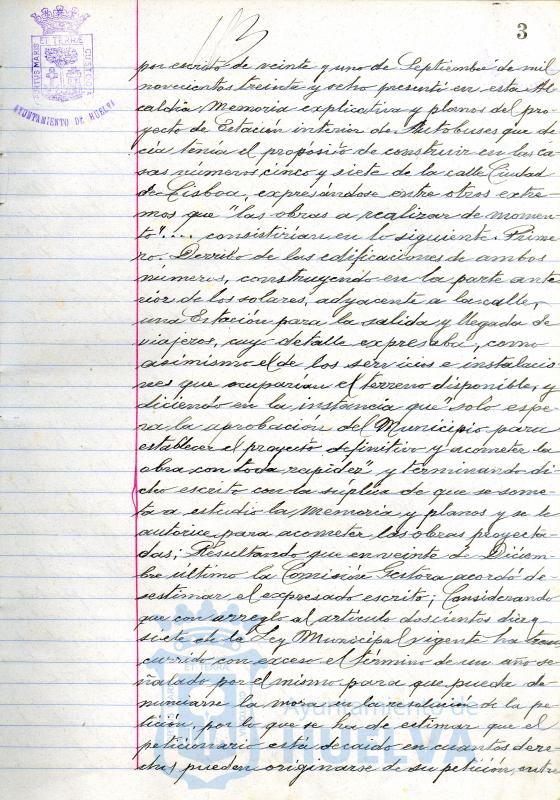 3
PORTUS MARIS ET TERRÆ CUSTODIA
AYUNTAMIENTO DE HUELVA
por escrito de veinte y uno de Septiembre de mil
novecientos treinta y ocho presentó en esta Al
caldía Memoria explicativa y planos del pro
yecto de Estación interior de Autobuses que de
cía tenía el propósito de construir en las ca
sas números cinco y siete de la calle Ciudad
de Lisboa, expresándose entre otros extre
mos que "las obras a realizar de momen
to".... consistirían en lo siguiente. Prime
ro. Derribo de las edificaciones de ambos
números, construyendo en la parte ante
rior de los solares, adyacente a la calle,
una Estación para la salida y llegada de
viajeros, cuyo detalle expresaba, como
asimismo el de los servicios e instalacio
nes que ocuparían el terreno disponible, y
diciendo en la instancia que "solo espe
ra la aprobación del Municipio para
establecer el proyecto definitivo y acometer la
obra con toda rapidez" y terminando di
cho escrito con la súplica de que se some
ta a estudio la Memoria y planos y se le
autorice para acometer las obras proyecta
das; Resultando que en veinte de Diciem
bre último la Comisión Gestora acordó de
sestimar el expresado escrito; Considerando
que con arreglo al artículo doscientos diez y
siete de la Ley Municipal vigente ha trans
currido con exceso el término de un año se
ñalado por el mismo para que pueda de
nunciarse la mora en la resolución de la pe
tición, por lo que se ha de estimar que el
peticionario está decaído en cuantos dere
chos pueden originarse de su petición, entre
Ayuntamiento de
HUELVA